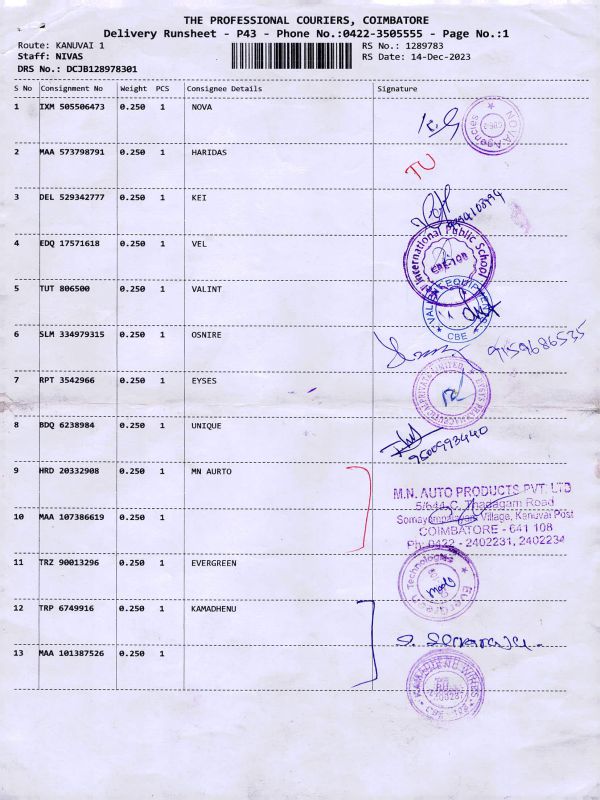 THE PROFESSIONAL COURIERS, COIMBATORE
Delivery Runsheet - P43 - Phone No.:0422-3505555 - Page No.:1
Route: KANUVAI 1 RS No.: 1289783
Staff: NIVAS RS Date: 14-Dec-2023
DRS No.: DCJB128978301
S No Consignment No Weight PCS Consignee Details Signature
1 IXM 505506473 0.250 1 NOVA
NOVA Agencies
2 MAA 573798791 0.250 1 HARIDAS TU
3 DEL 529342777 0.250 1 KEI
4 EDQ 17571618 0.250 1 VEL
International Public School
5 TUT 806500 0.250 1 VALINT
CBE
6 SLM 334979315 0.250 1 OSNIRE 9159686535
7 RPT 3542966 0.250 1 EYSES
8 BDQ 6238984 0.250 1 UNIQUE
9500993440
9 HRD 20332908 0.250 1 MN AURTO
M.N. AUTO PRODUCTS PVT. LTD
5/644-C, Thadagam Road
10 MAA 107386619 0.250 1
Village, Kanuvai Post
COIMBATORE - 641 108
Ph: 0422 - 2402231, 2402234
11 TRZ 90013296 0.250 1 EVERGREEN
Evergreen Technologies
12 TRP 6749916 0.250 1 KAMADHENU
13 MAA 101387526 0.250 1
KAMADHENU WIRES